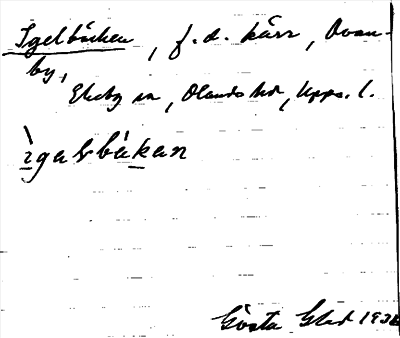 Igelbäcken, f.d. kärr, Ovan-
by,
Ekeby sn, Olands hd, Upps. l.
ìgalbàkan
Gösta